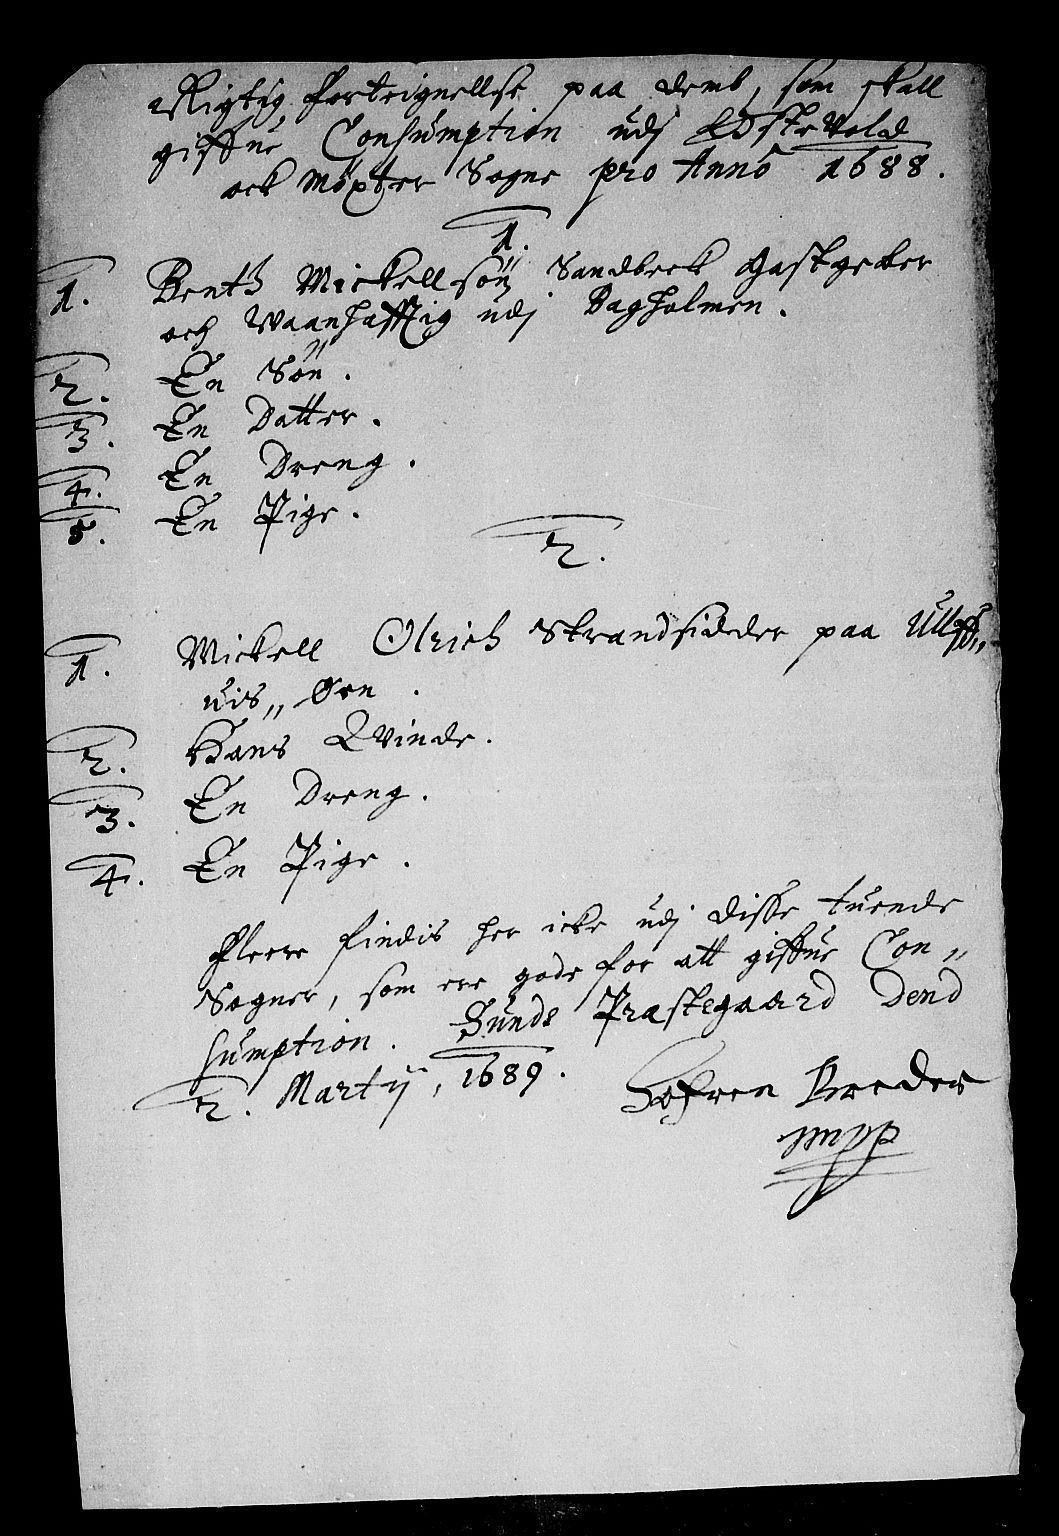 Rigtig Forteignellse paa demb, som skall
giffue Consumption udj Østevold
ock Møgster Sogne pro Anno 1688.
1.
1. Benth Mickellsøn Sandbeck Gastgeber
och Waanhafftig udj Bagholmen.
2. En Søn.
3. En Datter.
4. En Dreng.
5. En Pige.
2.
1. Mickell Olrich Strandsidder paa
uis,, Øen.
2. Hans Qvinde.
3. En Dreng.
4. En Pige.
Fleere findis her icke udj disse tuende
Sogner, som ere gode for att giffue Con,,
sumption. Sunds Præstegaard Dend
2. Martij, 1689.
Søfren Breder
mpp